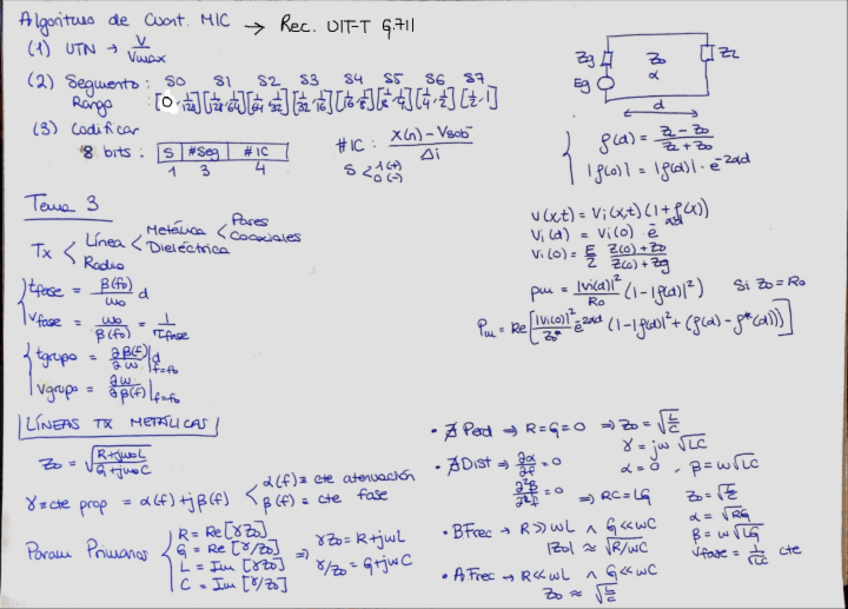 Algoritmo de Cuant. MIC → Rec. UIT-T G.711
(1) UTN → V/Vmax
(2) Segmento: S0 S1 S2 S3 S4 S5 S6 S7
Rango [0, 1/128] [1/128, 1/64] [1/64, 1/32] [1/32, 1/16] [1/16, 1/8] [1/8, 1/4] [1/4, 1/2] [1/2, 1]
(3) Codificar
8 bits: S #Seg #IC
1 3 4
#IC: X(n) - Vsob- / Δi
S < 1 (+) 0 (-)
Zg Eg Z0 α ZL
d
ρ(d) = ZL - Z0 / ZL + Z0
|ρ(0)| = |ρ(d)| · e^-2αd
Tema 3
Tx < Línea < Metálica < Pares
Coaxiales
Dieléctrica
Radio
v(x,t) = Vi(x,t) (1 + ρ(x))
Vi(d) = Vi(0) · e^-αd
Vi(0) = E/2 Z(0) + Z0 / Z(0) + Zg
tfase = β(f0)/ω0 d
Vfase = ω0/β(f0) = 1/τfase
tgrupo = ∂β(f)/∂ω |f=f0 d
Vgrupo = ∂ω/∂β(f) |f=f0
pm = |Vi(d)|²/R0 (1 - |ρ(d)|²) Si Z0 = R0
Pm = Re[|Vi(0)|²/Z0* e^-2αd (1 - |ρ(d)|² + (ρ(d) - ρ*(d)))]
LÍNEAS TX METÁLICAS
Z0 = √(R+jω0L / G+jω0C)
γ ≡ cte prop = α(f) + jβ(f) < α(f) ≡ cte atenuación
β(f) ≡ cte fase
Param Primarios { R = Re[γZ0]
G = Re[γ/Z0]
L = Im[γZ0]
C = Im[γ/Z0]
⇒ γZ0 = R+jωL
γ/Z0 = G+jωC
• ∄ Perd ⇒ R=G=0 ⇒ Z0 = √(L/C)
γ = jω √LC
α = 0 , β = ω√LC
• ∄ Dist ⇒ ∂α/∂f = 0
∂²β/∂²f = 0 ⇒ RC = LG
Z0 = √(L/C)
α = √RG
β = ω√LG
Vfase = 1/√LC cte
• BFrec → R ≫ ωL ∧ G ≪ ωC
|Z0| ≈ √(R/ωC)
• AFrec → R ≪ ωL ∧ G ≪ ωC
Z0 ≈ √(L/C)